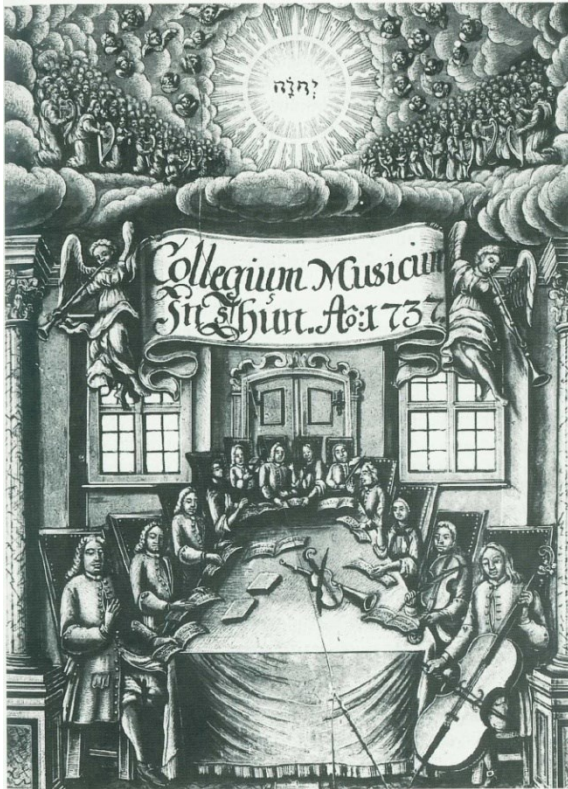 יְהֹוָה
Collegium Musicum
In Thun. Ao: 1737.